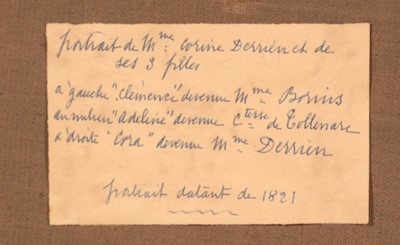 portrait de Mme Corine Derrien et de
ses 3 filles
a gauche "Clémence" devenue Mme Borius
au milieu "Adeline" devenue Ctesse de Tollenare
a droite "Cora" devenue Mme Derrien
portrait datant de 1821